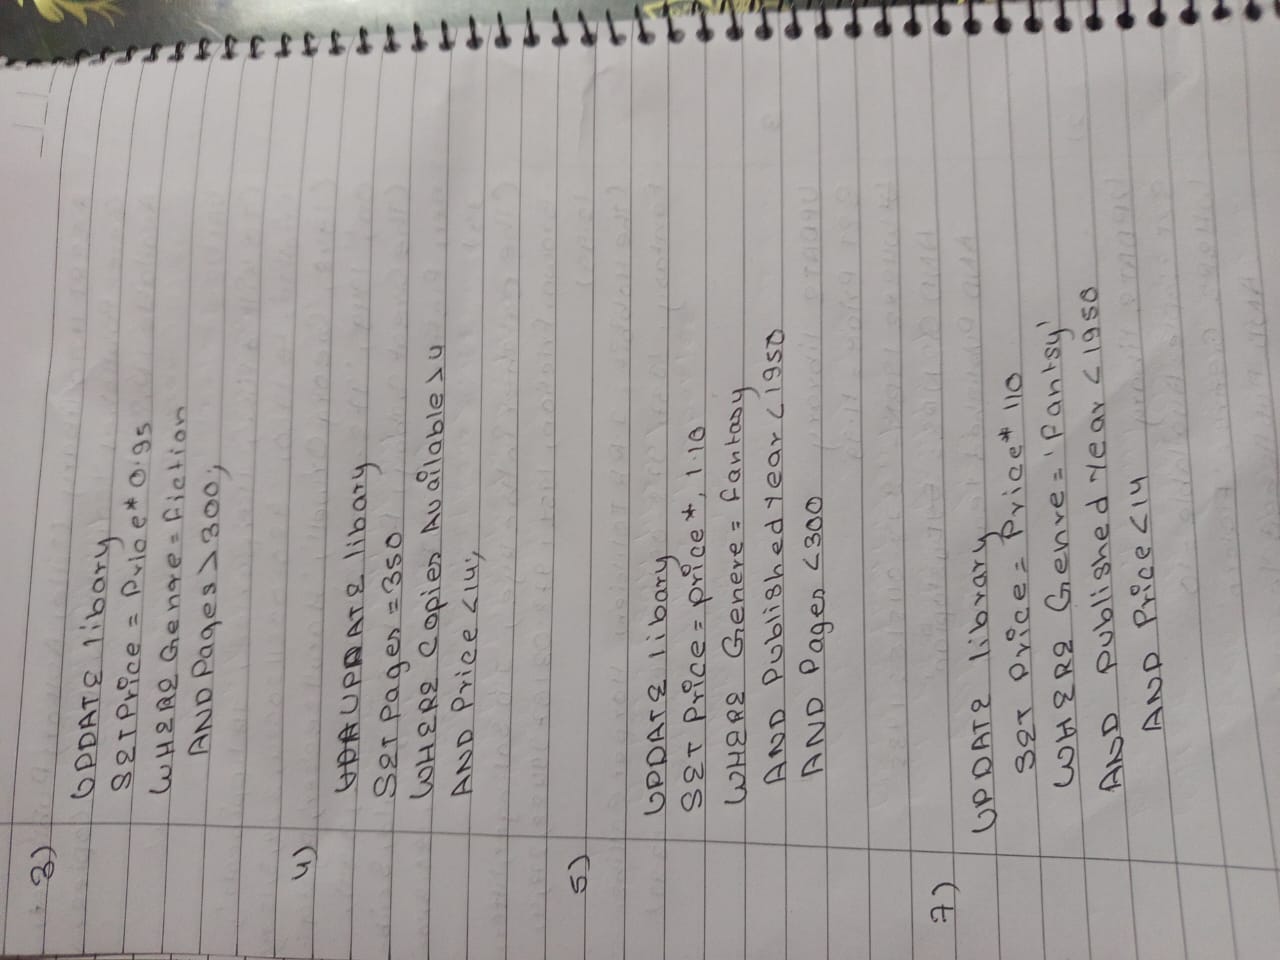 3)
UPDATE libary
SET Price = Price * 0.95
WHERE Genre = fiction
AND Pages > 300;
4)
UPDATE libary
SET Pages = 350
WHERE Copies Available > 4
AND Price < 14;
5)
UPDATE libary
SET Price = price * 1.10
WHERE Genere = fantasy
AND Published Year < 1950
AND Pages < 300
7)
UPDATE library
SET Price = Price * 110
WHERE Genre = 'Pantsy'
AND published Year < 1950
AND Price < 14